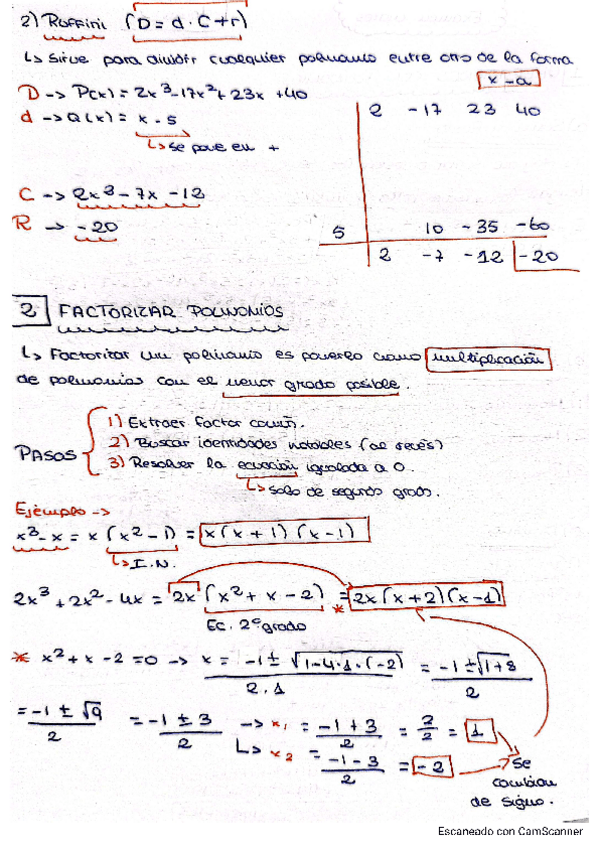 2) Ruffini (D = d · C + r)
↳ Sirve para dividir cualquier polinomio entre otro de la forma
x - a
D → P(x) = 2x³ - 17x² + 23x + 40
d → Q(x) = x - 5
↳ Se pone en +
2 -17 23 40
5 10 -35 -60
2 -7 -12 -20
C → 2x³ - 7x - 12
R → -20
2 FACTORIZAR POLINOMIOS
↳ Factorizar un polinomio es ponerlo como multiplicación
de polinomios con el menor grado posible.
PASOS
1) Extraer factor común.
2) Buscar identidades notables (al revés)
3) Resolver la ecuación igualada a 0.
↳ Solo de segundo grado.
Ejemplo →
x³ - x = x (x² - 1) = x (x + 1) (x - 1)
↳ I.N.
2x³ + 2x² - 4x = 2x (x² + x - 2) * = 2x (x + 2) (x - 1)
Ec. 2º grado
* x² + x - 2 = 0 → x = -1 ± √1 - 4 · 1 · (-2) / 2 · 1 = -1 ± √1 + 8 / 2
= -1 ± √9 / 2 = -1 ± 3 / 2 → x₁ = -1 + 3 / 2 = 2/2 = 1
↳ x₂ = -1 - 3 / 2 = -2 → Se
cambian
de signo.
Escaneado con CamScanner